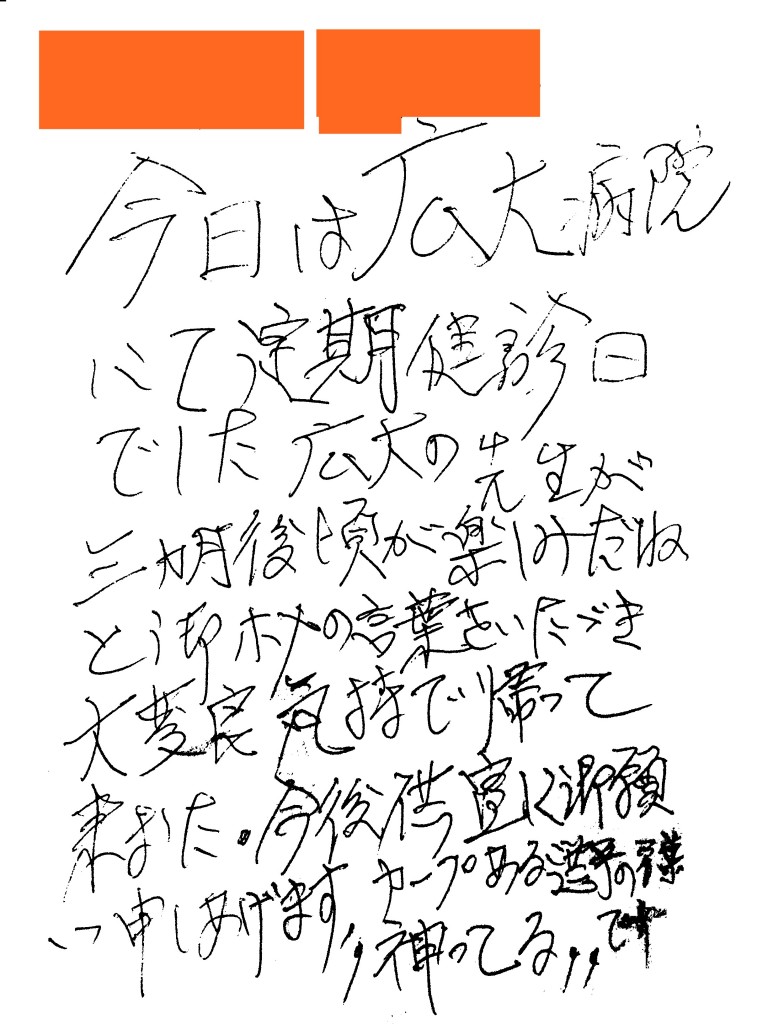 今日は広大病院
にて定期健診日
でした広大の先生が
三ヵ月後頃が楽しみだね
と御ホメの言葉をいただき
大変良気持で帰って
来ました・今後供宜しく御願
い申しあげます，カープある選手の言葉
，神ってる，，です